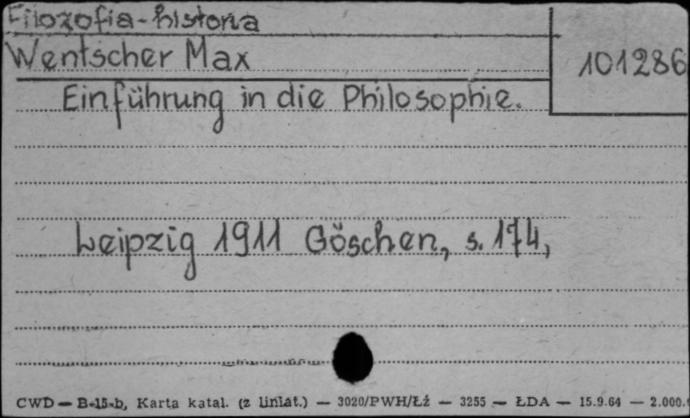 Filozofia-historia
Wentscher Max
101286
Einführung in die Philosophie.
Leipzig 1911 Göschen, s. 174,
CWD — B-15-b, Karta katal. (z liniat.) — 3020/PWH/Łź — 3255 — ŁDA — 15.9.64 — 2.000.